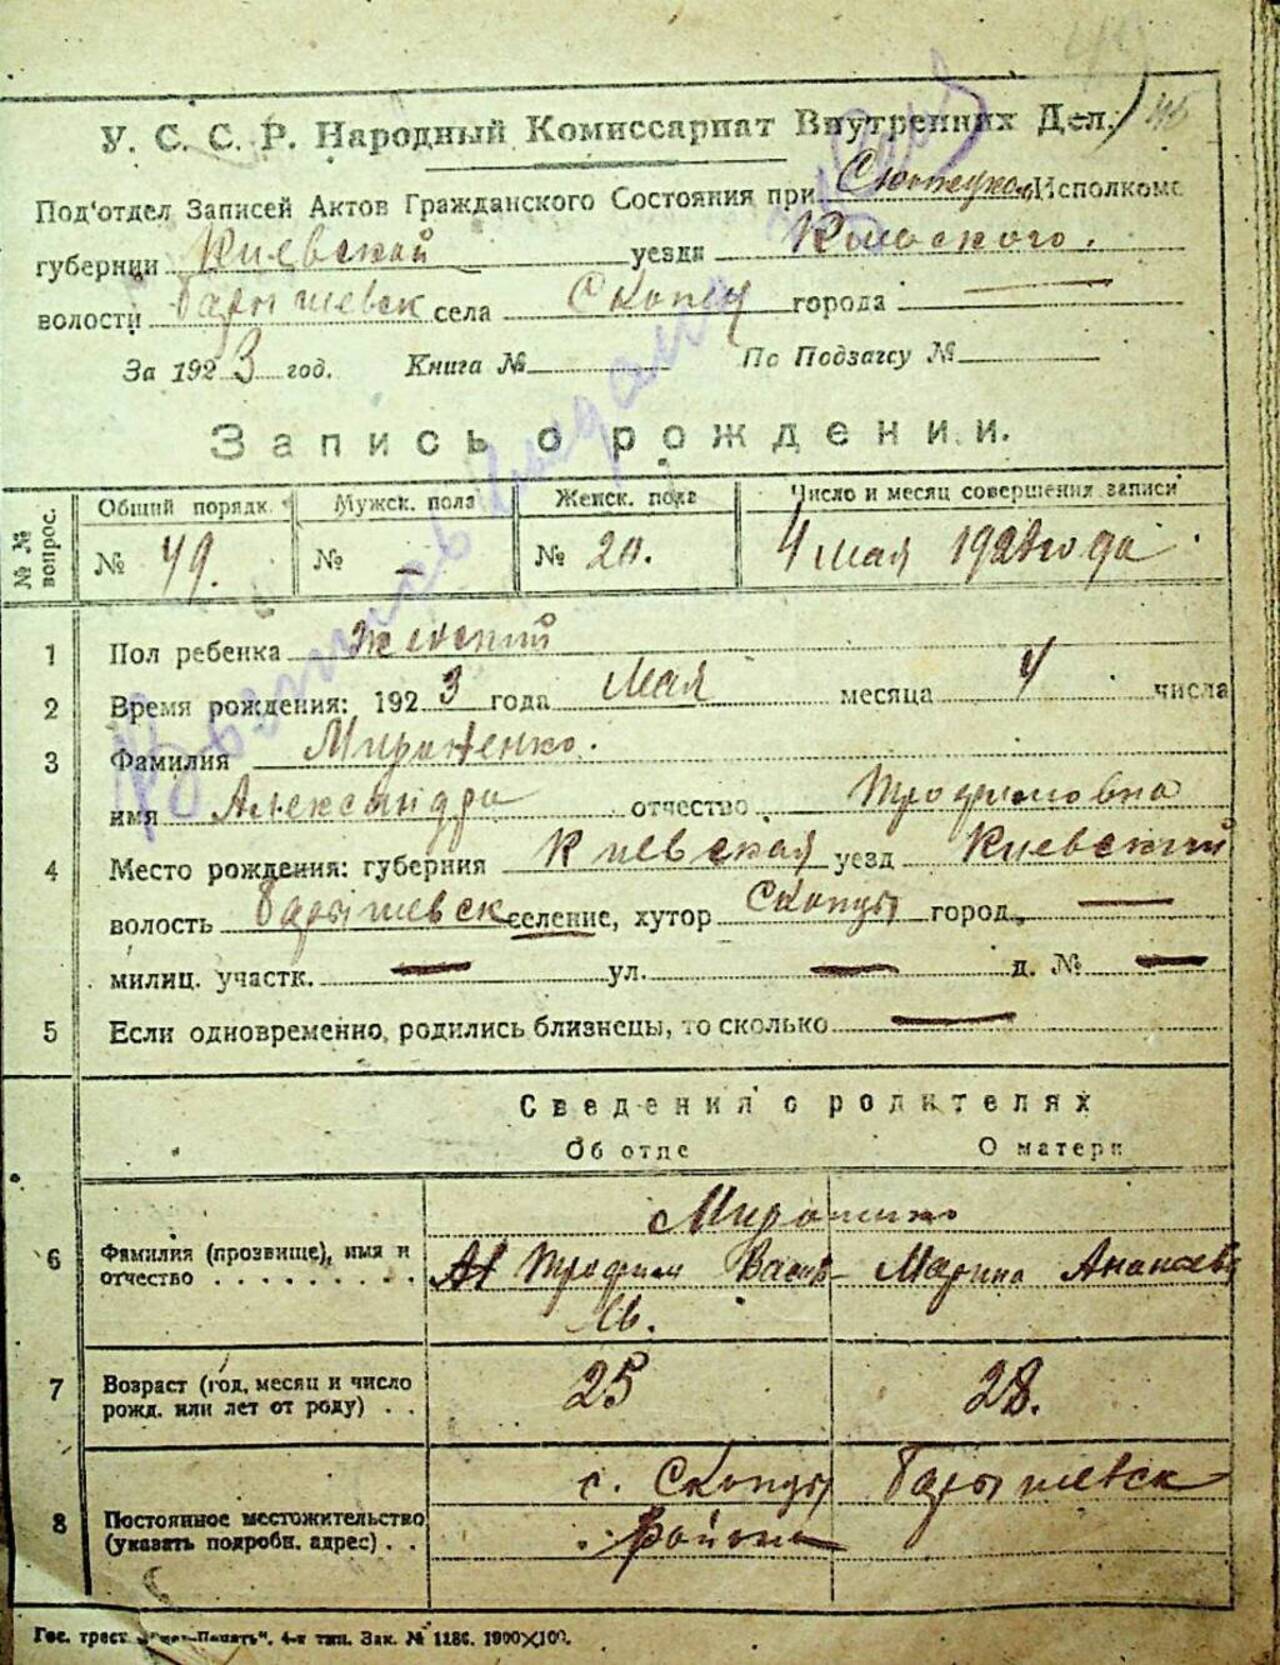 У. С. С. Р. Народный Комиссариат Внутренних Дел.
Под'отдел Записей Актов Гражданского Состояния при Исполкоме
губернии Киевской уезда Киевского.
волости Барышевск села Скопец города —
За 1923 год. Книга № По Подзагсу №
Запись о рождении.
№№ вопрос. Общий порядк. Мужск. пола Женск. пола Число и месяц совершения записи
№ 49. № — № 20. 4 мая 1923 года
1 Пол ребенка женский
2 Время рождения: 1923 года Мая месяца 4 числа
3 Фамилия Мироненко.
имя Александра отчество Трофимовна
4 Место рождения: губерния Киевская уезд Киевский
волость Барышевск селение, хутор Скопцы город, —
милиц. участк. — ул. — д. № —
5 Если одновременно родились близнецы, то сколько —
Сведения о родителях
Об отце О матери
Мироненко
6 Фамилия (прозвище), имя и отчество Трофим Василь Марина Ананиев
7 Возраст (год, месяц и число рожд. или лет от роду) 25 28.
8 Постоянное местожительство (указать подробн. адрес) с. Скопцы Барышевск
района
Гос. трест 4-я тип. Зак. № 1186. 1000×100.